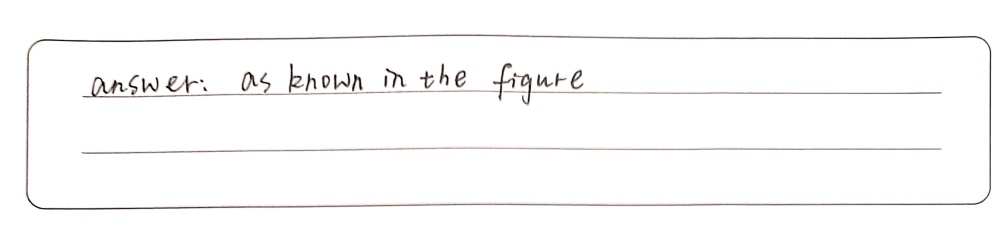 answer: as known in the figure